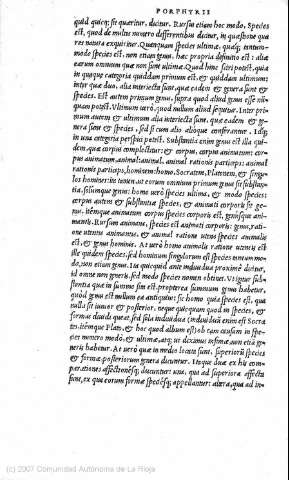 PORPHYRII
quid quicq; sit quæritur, dicitur. Rursus etiam hoc modo, Species
est, quod de multis numero differentibus dicitur, in quæstione quæ
res natura exquiritur. Quanquam species ultimæ, quæq; tantum-
modo species est, non etiam genus, hæc propria definitio est: aliæ
earum omnium quæ non sunt ultimæ. Quod hinc sciri potest, quia
in quoque categoria quiddam primum est, & quiddam ultimum:
inter quæ duo, alia interiecta sunt, quæ eadem & genera sunt &
species. Est autem primum genus, supra quod aliud genus esse nū-
quam potest. Ultimum uerò, quod nullum aliud sequitur. Inter pri-
mum autem & ultimum alia interiecta sunt, quæ eadem & ge-
nera sunt & species, sed si cum alio alioque conferantur. Idq;
in una categoria perspici potest. Substantia enim genus est: illa qui-
dem, quæ corpus complectitur: & corpus, corpus animatum: cor-
pus animatum, animal: animal, animal rationis particeps: animal
rationis particeps, hominem: homo, Socratem, Platonem, & singu-
los homines: ita tamen ut eorum omnium primum genus sit substan-
tia, solumque genus: homo uerò species ultima, & modò species:
corpus autem & substantiæ species, & animati corporis sit ge-
nus. itémque animatum corpus species corporis est, genúsque ani-
mantis. Rursum animans, species est animati corporis: genus, rati-
one utentis animantis. & animal ratione utens species animalis
est, & genus hominis. At uerò homo animalis ratione utentis est
ille quidem species: sed hominum singulorum est species tantum mo-
do, non etiam genus. Ita quicquid ante indiuidua proximè dicitur,
id omne non generis, sed modò species nomen obtinet. Vt igitur sub-
stantia quæ in summo sim est, propterea summum genus habetur,
quòd genus est nullum ea antiquius: sic homo quia species est, qua
nulla sit iunior & posterior, neque quicquam quod in species, &
formas diuidi queat, sed sola indiuidua (indiuiduū enim est Socra-
tes, itémque Plato, & hoc quod album est) ob eam causam in spe-
cies numero modò, & ultima, atq; ut diximus infima, non etiā ge-
neris habetur. At uerò quæ in medio locata sunt, superiorū species
& formæ, posteriorum genera dicuntur. Itaque duæ ex his com-
parationes affectionésq; ducuntur: una, qua ad superiora affecta
sunt, ex qua eorum formæ speciésq; appellantur: altera, qua ad in-
(c) 2007 Comunidad Autónoma de La Rioja